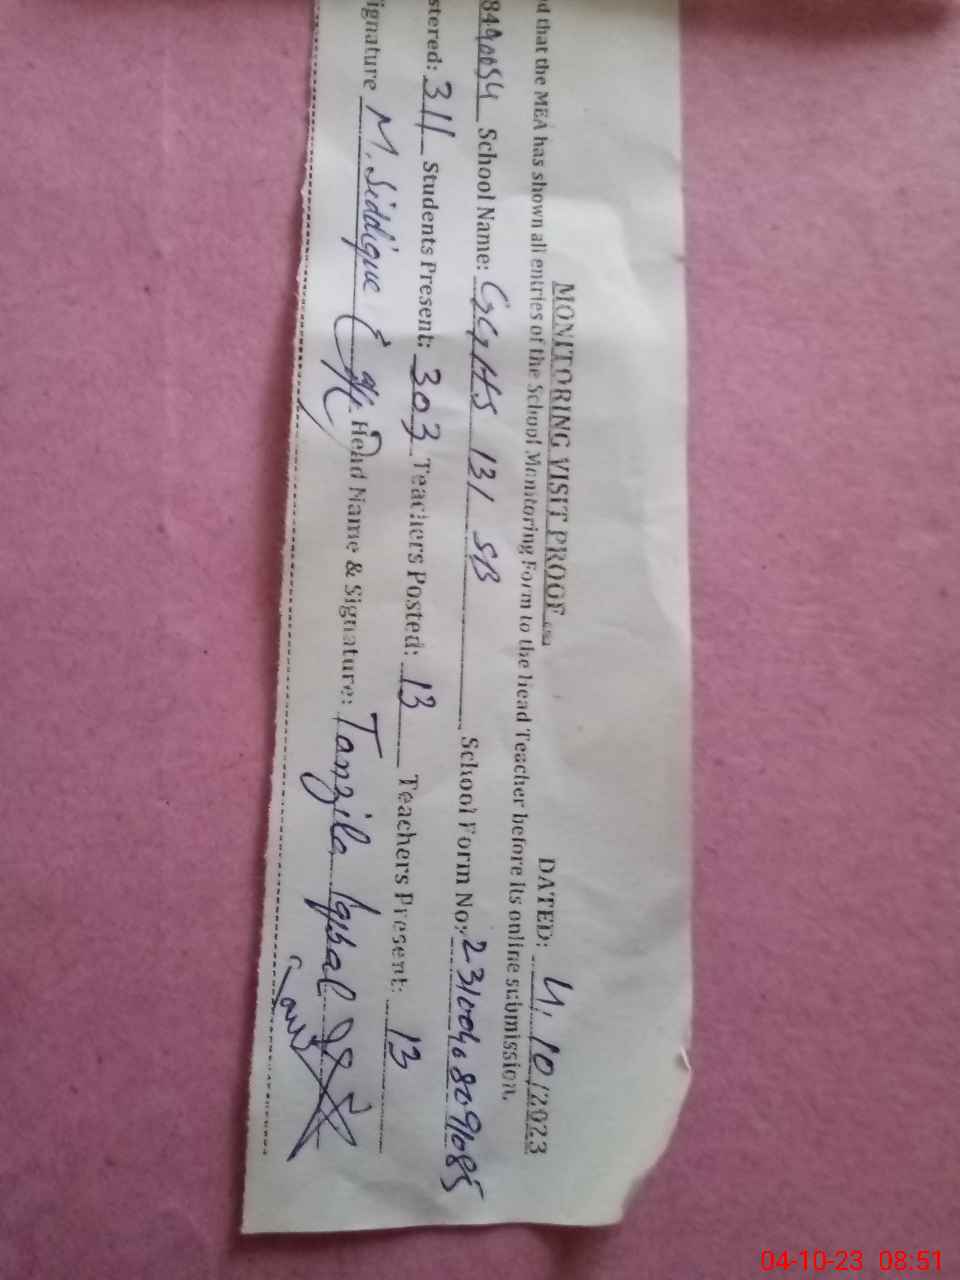 MONITORING VISIT PROOF
DATED: 4/10/2023
d that the MEA has shown all entries of the School Monitoring Form to the head Teacher before its online submission.
8490054 School Name: GGHS 131 SB School Form No: 2310040809085
stered: 311 Students Present: 303 Teachers Posted: 13 Teachers Present: 13
ignature M. Siddique Head Name & Signature: Tanzila Iqbal
04-10-23 08:51